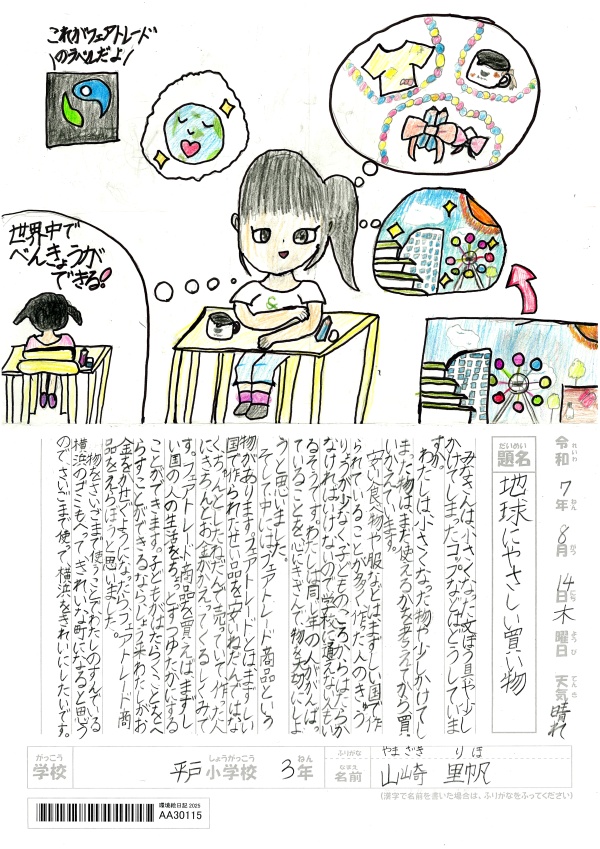 これがフェアトレード
のラベルだよ
世界中で
べんきょうが
できる!
令和7年8月14日木曜日 天気 晴れ
れいわ ねん がつ にち ようび てんき
だいめい
題名 地球にやさしい買い物
みなさんは小さくなった文ぼう具や少し
かけてしまったコップなどはどうしていま
すか。
わたしは小さくなった物や少しかけてし
まった物は、まだ使えるかを考えてから、買
いかえています。
安い食べ物や服などは、まずしい国で作
られていることが多く、作った人のきゅう
りょうが少なく、子どものころからはたらか
なければいけないので学校に通えない人もい
るそうです。わたしは同い年の人がはたらい
ていることを心にきざんで、物を大切にしよ
うと思いました。
そして中には、フェアトレード商品という
物があります。フェアトレードとは、まずしい
国で作られたせい品を安いねだんではな
くちゃんとしたねだんで売っていて作った人
にきちんとお金がかえってくるしくみで
す。フェアトレード商品を買えば、まずし
い国の人の生活を、ちょっとずつゆたかにする
ことができます。子どもがはたらくことをへ
らすことができるなら、しょう来わたしがお
金をかせぐようになったら、フェアトレード商
品をえらぼうと思いました。
物をさいごまで使うことでわたしのすんでいる
横浜のゴミもへってきれいな町になると思う
のでさいごまで使って横浜をきれいにしたいです。
がっこう しょうがっこう ねん ふりがな やまざき りほ
学校 平戸小学校 3年 なまえ 名前 山崎 里帆
(漢字で名前を書いた場合は、ふりがなをふってください)
環境絵日記 2025
AA30115